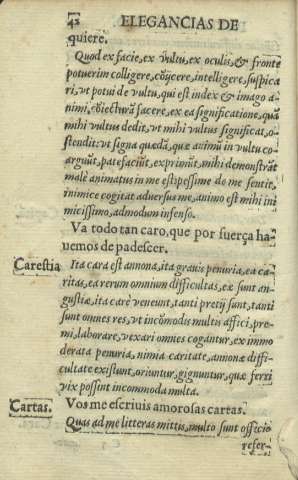 42 ELEGANCIAS DE
quiere.
Quod ex facie, ex vultu, ex oculis, & fronte
potuerim colligere, cōijcere, intelligere, suspica
ri, vt potui de vultu, qui est index & imago a-
nimi, cōiecturā facere, ex ea significatione, quā
mihi vultus dedit, vt mihi vultus significat, o-
stendit: vt signa quædā, quæ animū in vultu co
arguūt, patefaciūt, exprimūt, mihi demonstrāt
malè animatus in me est: pessime de me sentit,
inimice cogitat aduersus me, animo est mihi ini
micissimo, admodum infenso.
Va todo tan caro, que por fuerça ha-
uemos de padescer.
Carestia Ita cara est annona, ita grauis penuria, ea ca-
ritas, ea rerum omnium difficultas, ex sunt an-
gustiæ, ita carè veneunt, tanti pretij sunt, tanti
sunt omnes res, vt incōmodis multis affici, pre-
mi, laborare, vexari omnes cogantur, ex immo
derata penuria, nimia caritate, annonæ diffi-
cultate existunt, oriuntur, gignuntur, quæ ferri
vix possint incommoda multa.
Cartas. Vos me escriuis amorosas cartas.
Quas ad me litteras mittis, multo sunt officio
refer-